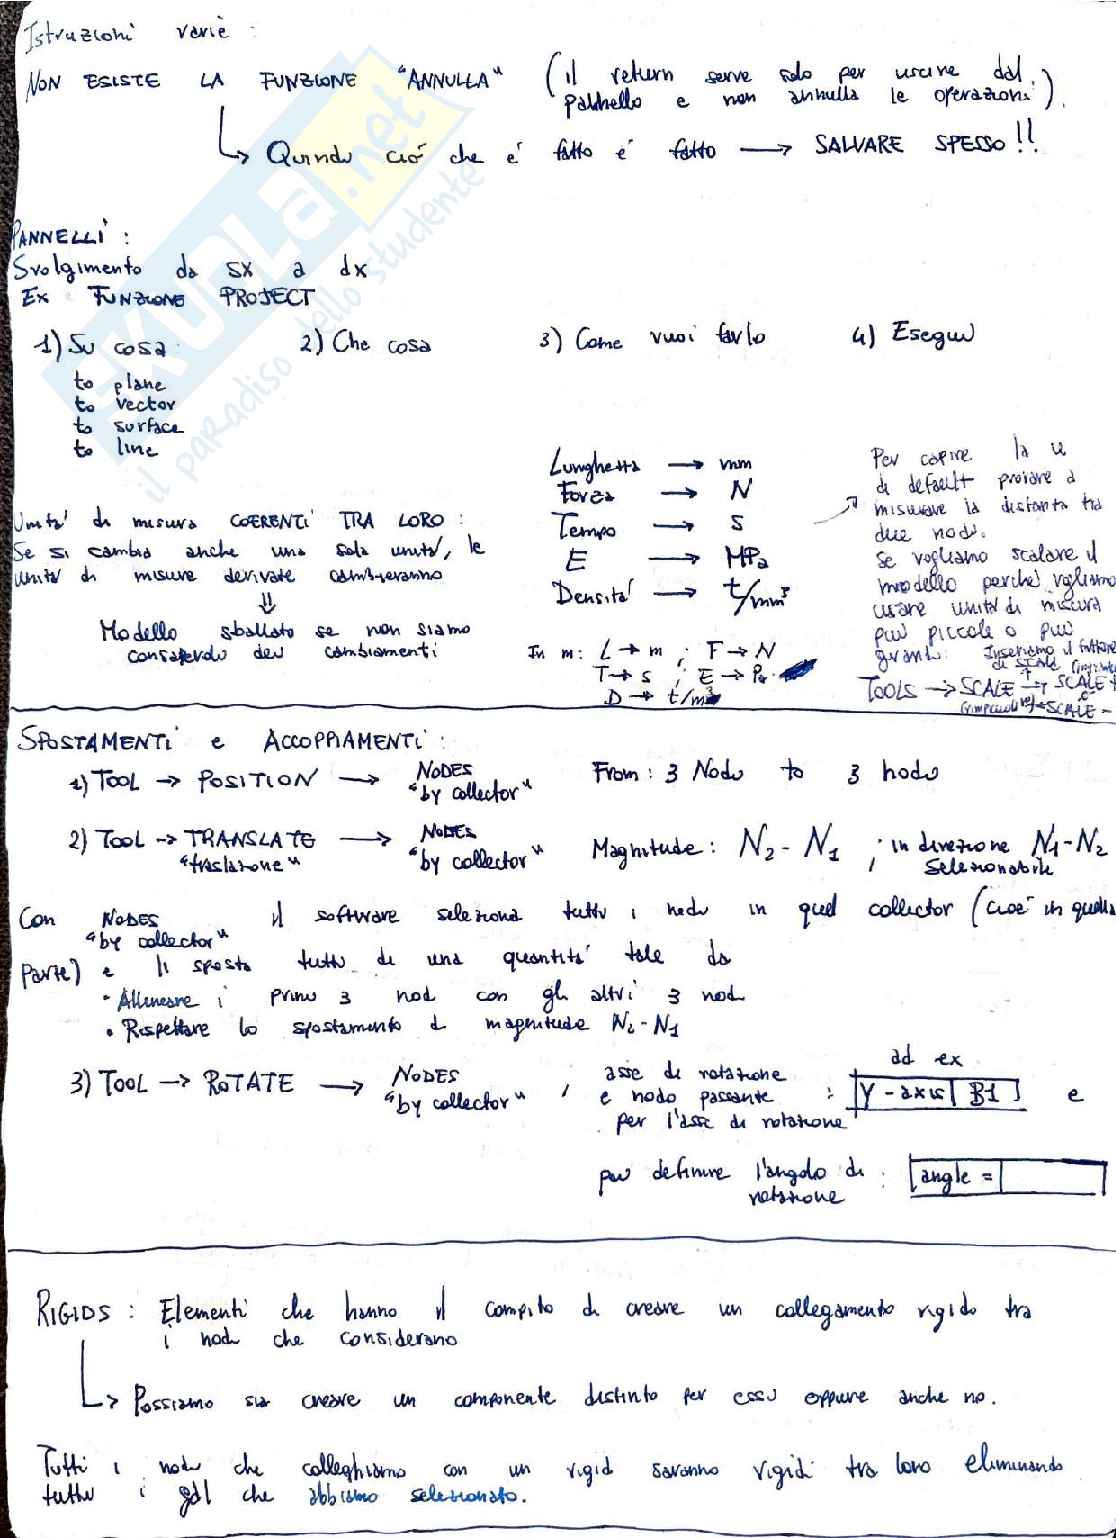 Istruzioni varie :
NON ESISTE LA FUNZIONE "ANNULLA" (il return serve solo per uscire dal
pannello e non annulla le operazioni).
↳ Quindi ciò che è fatto è fatto → SALVARE SPESSO!!
SKUOLA.net
il paradiso dello studente
PANNELLI :
Svolgimento da sx a dx
Ex FUNZIONE PROJECT
1) Su cosa
2) Che cosa
3) Come vuoi farlo
4) Esegui
to plane
to vector
to surface
to line
Unità di misura COERENTI TRA LORO :
Se si cambia anche una sola unità, le
unità di misure derivate cambieranno
⇓
Modello sballato se non siamo
consapevoli dei cambiamenti
Lunghezza → mm
Forza → N
Tempo → s
E → MPa
Densità → t/mm³
In m: L → m ; F → N
T → s ; E → Pa
D → t/m³
Per capire la u
di default provare a
misurare la distanza tra
due nodi.
Se vogliamo scalare il
modello perché vogliamo
usare unità di misura
più piccole o più
grandi: Inseriamo il fattore
di SCALE
TOOLS → SCALE → SCALE +
SCALE -
SPOSTAMENTI e ACCOPPIAMENTI :
1) TOOL → POSITION → NODES From : 3 Nodi to 3 nodi
"by collector"
2) TOOL → TRANSLATE → NODES Magnitude : N2 - N1 ; in direzione N1-N2
"traslazione" "by collector" selezionabile
Con NODES il software seleziona tutti i nodi in quel collector (cioè in quella
"by collector"
parte) e li sposta tutti di una quantità tale da
• Allineare i primi 3 nodi con gli altri 3 nodi
• Rispettare lo spostamento di magnitude N2-N1
3) TOOL → ROTATE → NODES , asse di rotazione
"by collector" e nodo passante :
per l'asse di rotazione
ad ex
Y-axis | B1 e
per definire l'angolo di : angle =
rotazione
RIGIDS : Elementi che hanno il compito di creare un collegamento rigido tra
i nodi che considerano
↳ Possiamo sia creare un componente distinto per essi oppure anche no.
Tutti i nodi che colleghiamo con un rigid saranno rigidi tra loro eliminando
tutti i gdl che abbiamo selezionato.